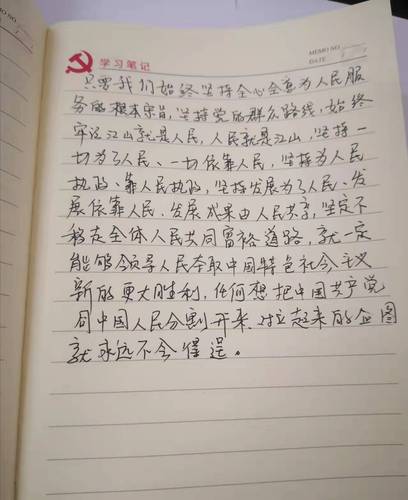 学习笔记
MEMO NO.
DATE
只要我们始终坚持全心全意为人民服
务的根本宗旨,坚持党的群众路线,始终
牢记江山就是人民,人民就是江山,坚持一
切为了人民、一切依靠人民,坚持为人民
执政、靠人民执政,坚持发展为了人民、发
展依靠人民、发展成果由人民共享,坚定不
移走全体人民共同富裕道路,就一定
能够领导人民夺取中国特色社会主义
新的更大胜利,任何想把中国共产党
同中国人民分割开来、对立起来的企图
就永远不会得逞。